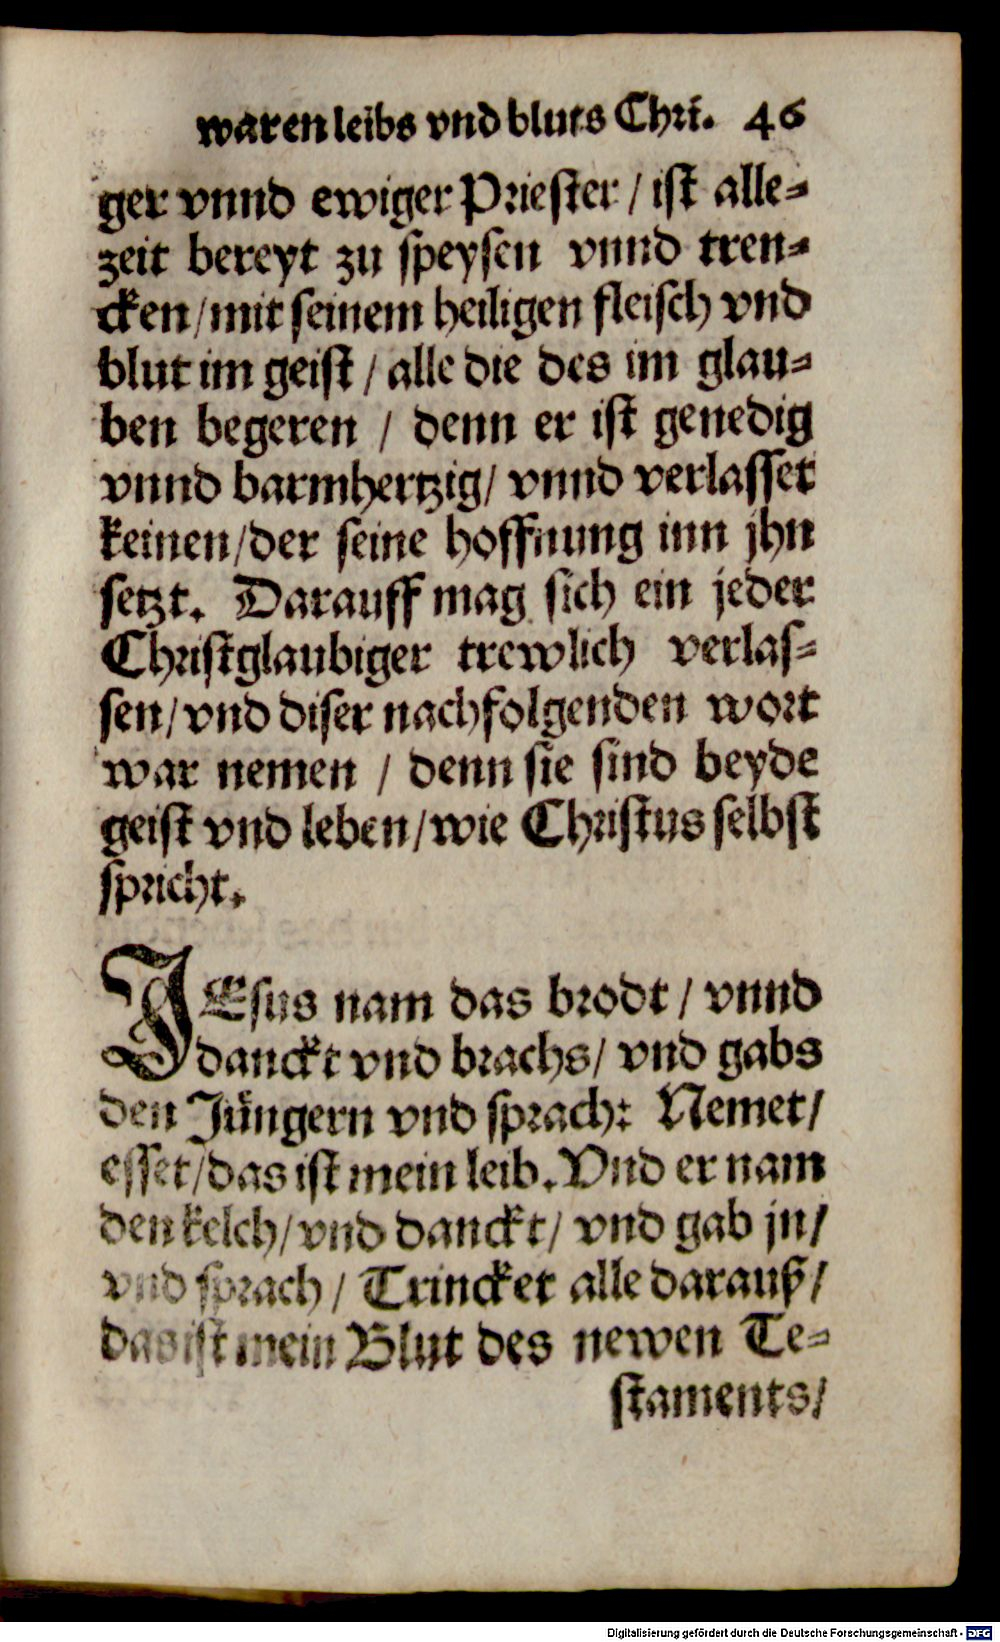 waren leibs vnd bluts Chri. 46
ger vnnd ewiger Priester / ist alle-
zeit bereyt zu speysen vnnd tren-
cken / mit seinem heiligen fleisch vnd
blut im geist / alle die des im glau-
ben begeren / denn er ist genedig
vnnd barmhertzig / vnnd verlasset
keinen / der seine hoffnung inn jhn
setzt. Darauff mag sich ein jeder
Christglaubiger trewlich verlas-
sen / vnd diser nachfolgenden wort
war nemen / denn sie sind beyde
geist vnd leben / wie Christus selbst
spricht.
JEsus nam das brodt / vnnd
danckt vnd brachs / vnd gabs
den Jüngern vnd sprach: Nemet /
esset / das ist mein leib. Vnd er nam
den kelch / vnd danckt / vnd gab jn /
vnd sprach / Trincket alle darauß /
das ist mein Blut des newen Te-
staments /
Digitalisierung gefördert durch die Deutsche Forschungsgemeinschaft - DFG